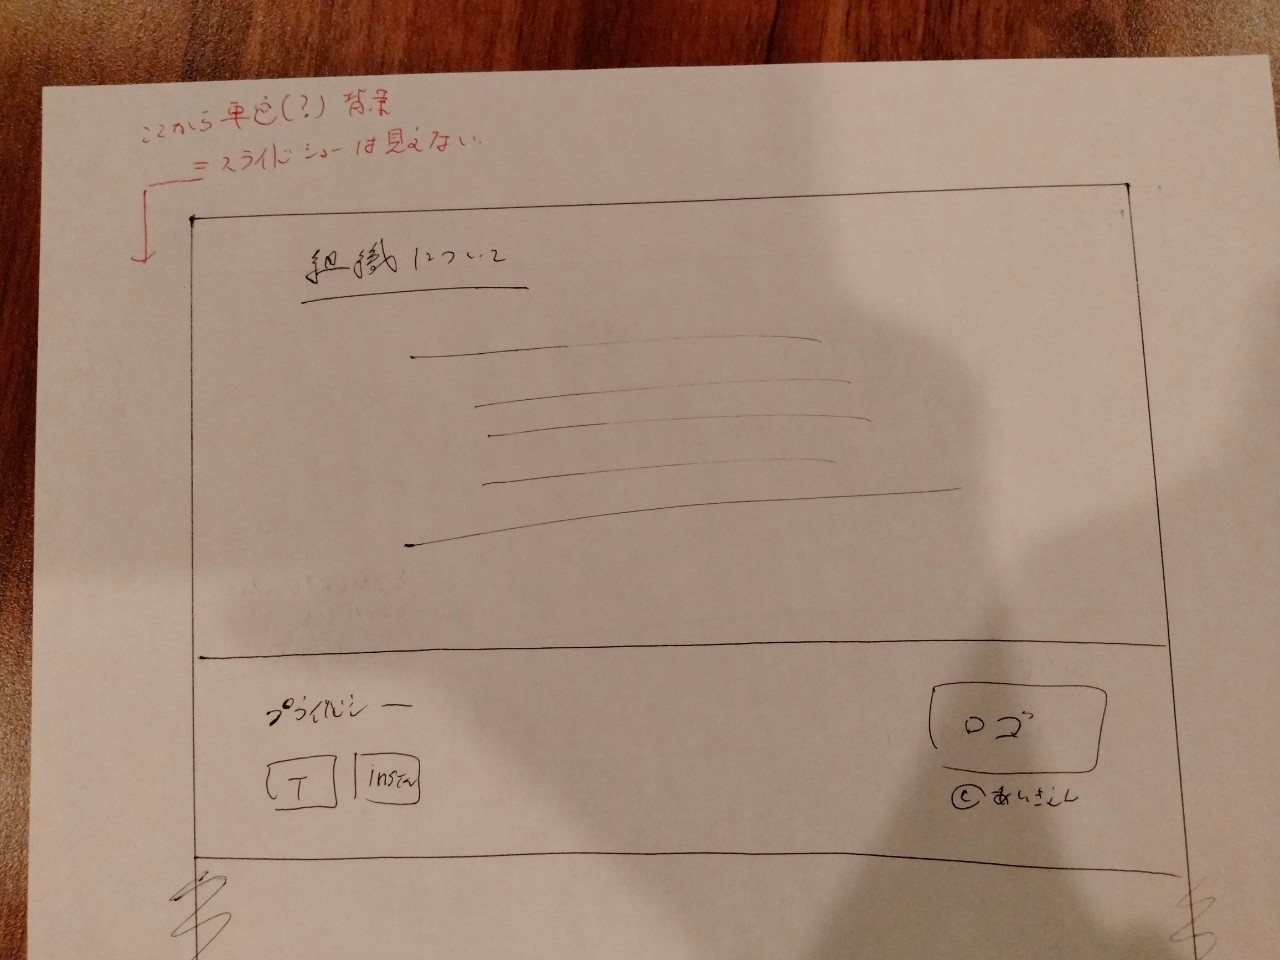 ここから単色(?)背景
=スライドショーは見えない
組織について
プライバシー
T insta
ロゴ
©